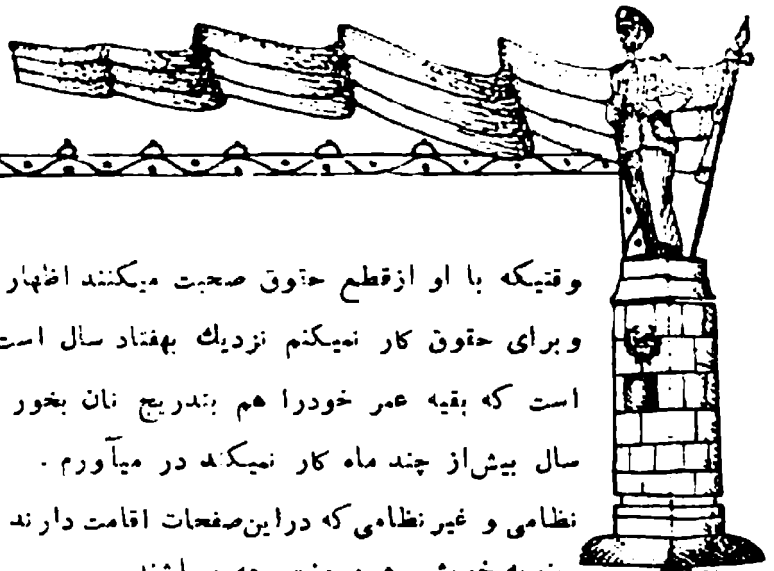 وقتیکه با او ازقطع حقوق صحبت میکنند اظهار
وبرای حقوق کار نمیکنم نزدیك بهفتاد سال است
است که بقیه عمر خودرا هم بتدریج نان بخور
سال بیش‌از چند ماه کار نمیکند در میآورم .
نظامی و غیر نظامی که دراین‌صفحات اقامت دارند